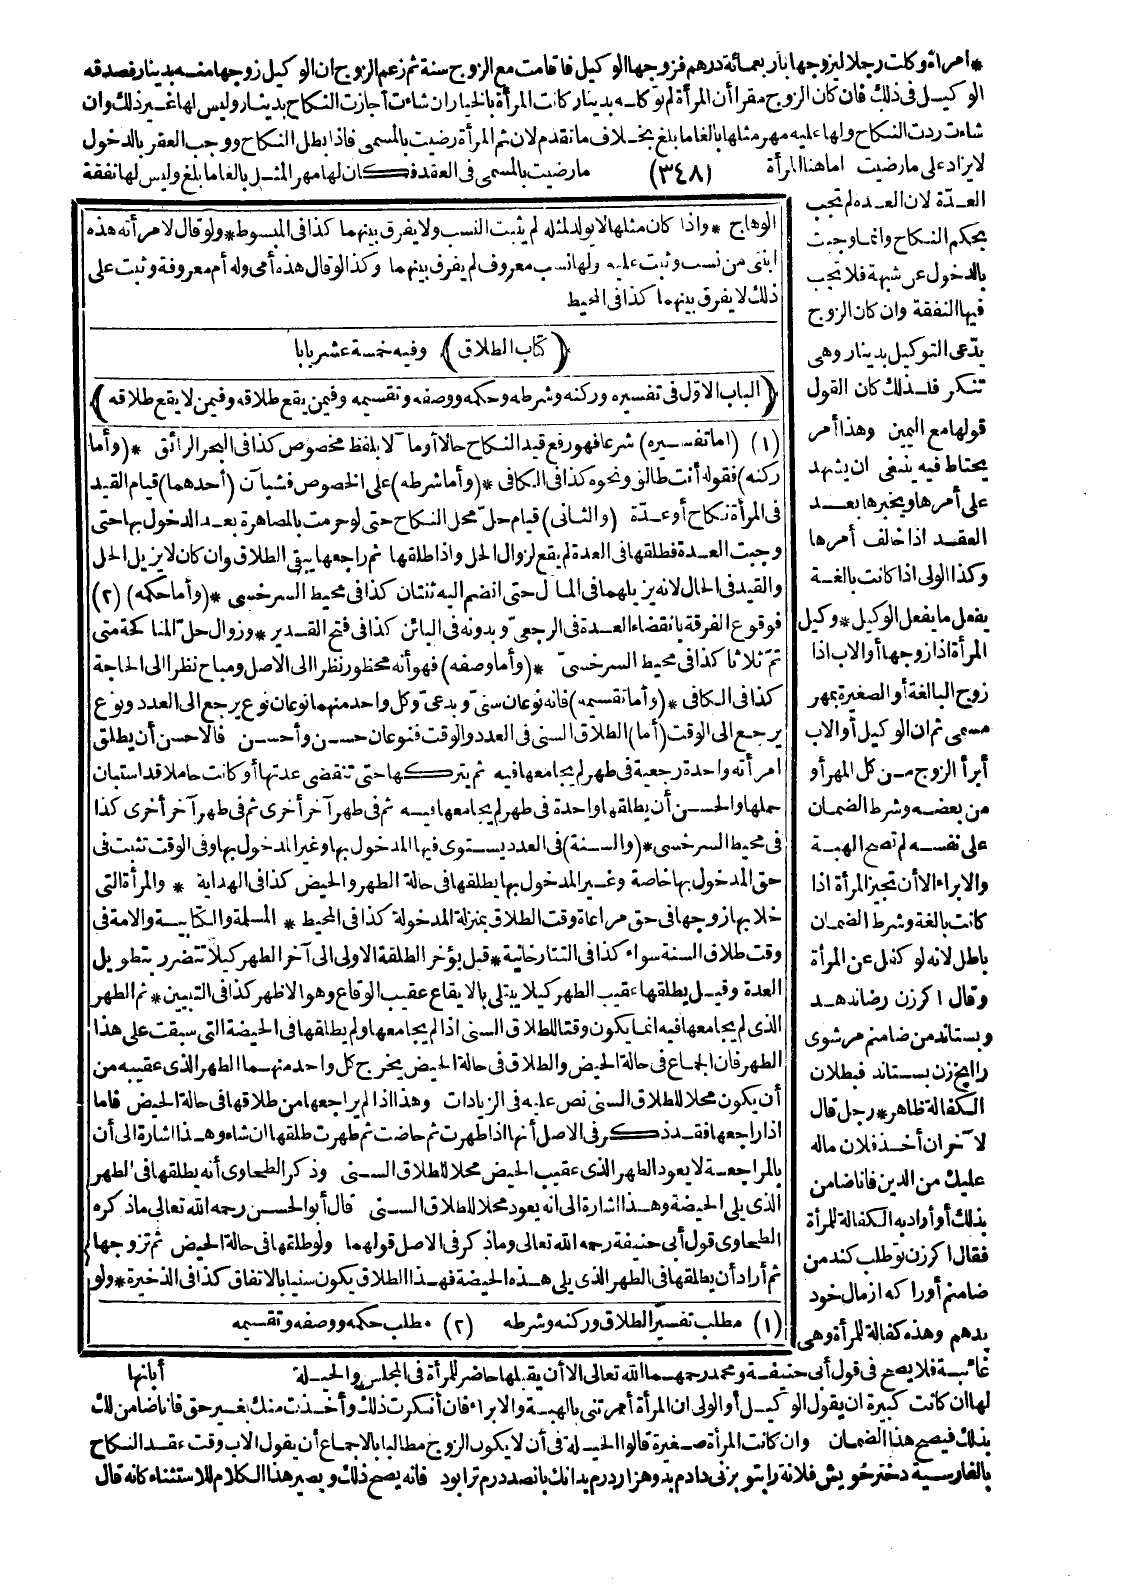 * امرأة وكلت رجلا ليزوجها بأربعمائة درهم فزوجها الوكيل فأقامت مع الزوج سنة ثم زعم الزوج ان الوكيل زوجها منه بدينار فصدقه
الوكيل فى ذلك فان كان الزوج مقرا أن المرأة لم توكله بدينار كانت المرأة بالخيار ان شاءت أجازت النكاح بدينار وليس لها غير ذلك وان
شاءت ردت النكاح ولها عليه مهر مثلها بالغا ما بلغ بخلاف ما تقدم لان ثم المرأة رضيت بالمسمى فاذا بطل النكاح ووجب العقر بالدخول
لا يزاد على ما رضيت أما هنا المرأة (٣٤٨) ما رضيت بالمسمى فى العقد فكان لها مهر المثل بالغا ما بلغ وليس لها نفقة
العدّة لان العدة لم تجب
بحكم النكاح وانما وجبت
بالدخول عن شبهة فلا تجب
فيها النفقة وان كان الزوج
يدّعى التوكيل بدينار وهى
تنكر فلذلك كان القول
قولها مع اليمين وهذا أمر
يحتاط فيه ينبغى ان يشهد
على أمرها ويخبرها بعد
العقد اذا خالف أمرها
وكذا الولى اذا كانت بالغة
يفعل ما يفعل الوكيل * وكيل
المرأة اذا زوجها أو الاب اذا
زوج البالغة أو الصغيرة بمهر
مسمى ثم ان الوكيل أو الاب
أبرأ الزوج من كل المهر أو
من بعضه وشرط الضمان
على نفسه لم تصح الهبة
والابراء الا أن تجيز المرأة اذا
كانت بالغة وشرط الضمان
باطل لانه لو كفل عن المرأة
وقال اكرزن رضاندهد
وبستاند من ضامنم مرشوى
را انچ زن بستاند فبطلان
الكفالة ظاهر * رجل قال
لآخر ان أخذ فلان ماله
عليك من الدين فانا ضامن
بذلك أو أراد به الكفالة للمرأة
فقال اكرزن تو طلب كند من
ضامنم أورا كه از مال خود
بدهم وهذه كفالة للمرأة وهى
الوهاج * واذا كان مثلها لا يولد لمثله لم يثبت النسب ولا يفرق بينهما كذا فى المبسوط * ولو قال لامرأته هذه
ابنتى من نسب وثبت عليه ولها نسب معروف لم يفرق بينهما وكذا لو قال هذه أمى وله أم معروفة وثبت على
ذلك لا يفرق بينهما كذا فى المحيط
(كتاب الطلاق) وفيه خمسة عشر بابا
(الباب الاول فى تفسيره وركنه وشرطه وحكمه ووصفه وتقسيمه وفيمن يقع طلاقه وفيمن لا يقع طلاقه)
(١) (اما تفسيره) شرعا فهو رفع قيد النكاح حالا أو مآلا بلفظ مخصوص كذا فى البحر الرائق * (وأما
ركنه) فقوله أنت طالق ونحوه كذا فى الكافى * (وأما شرطه) على الخصوص فشيآن (أحدهما) قيام القيد
فى المرأة نكاح أو عدّة (والثانى) قيام حلّ محل النكاح حتى لو حرمت بالمصاهرة بعد الدخول بها حتى
وجبت العدة فطلقها فى العدة لم يقع لزوال الحل واذا طلقها ثم راجعها يبقى الطلاق وان كان لا يزيل الحل
والقيد فى الحال لانه يزيلهما فى المآل حتى انضم اليه ثنتان كذا فى محيط السرخسى * (وأما حكمه) (٢)
فوقوع الفرقة بانقضاء العدة فى الرجعىّ وبدونه فى البائن كذا فى فتح القدير * وزوال حلّ المناكحة متى
تمّ ثلاثا كذا فى محيط السرخسىّ * (وأما وصفه) فهو أنه محظور نظرا الى الاصل ومباح نظرا الى الحاجة
كذا فى الكافى * (وأما تقسيمه) فانه نوعان سنىّ وبدعىّ وكل واحد منهما نوعان نوع يرجع الى العدد ونوع
يرجع الى الوقت (أما) الطلاق السنى فى العدد والوقت فنوعان حسن وأحسن فالاحسن أن يطلق
امرأته واحدة رجعية فى طهر لم يجامعها فيه ثم يتركها حتى تنقضى عدتها أو كانت حاملا قد استبان
حملها والحسن أن يطلقها واحدة فى طهر لم يجامعها فيه ثم فى طهر آخر أخرى ثم فى طهر آخر أخرى كذا
فى محيط السرخسى * (والسنة) فى العدد يستوى فيها المدخول بها وغير المدخول بها وفى الوقت تثبت فى
حق المدخول بها خاصة وغير المدخول بها يطلقها فى حالة الطهر والحيض كذا فى الهداية * والمرأة التى
خلا بها زوجها فى حق مراعاة وقت الطلاق بمنزلة المدخولة كذا فى المحيط * المسلمة والكتابية والامة فى
وقت طلاق السنة سواء كذا فى التتارخانية * قيل يؤخر الطلقة الاولى الى آخر الطهر كيلا تتضرر بتطويل
العدة وقيل يطلقها عقيب الطهر كيلا يبتلى بالايقاع عقيب الوقاع وهو الاظهر كذا فى التبيين * ثم الطهر
الذى لم يجامعها فيه انما يكون وقتا للطلاق السنى اذا لم يجامعها ولم يطلقها فى الحيضة التى سبقت على هذا
الطهر فان الجماع فى حالة الحيض والطلاق فى حالة الحيض يخرج كل واحد منهما الطهر الذى عقيبه من
أن يكون محلا للطلاق السنى نص عليه فى الزيادات وهذا اذا لم يراجعها من طلاقها فى حالة الحيض فاما
اذا راجعها فقد ذكر فى الاصل أنها اذا طهرت ثم حاضت ثم طهرت طلقها ان شاء وهذا اشارة الى أن
بالمراجعة لا يعود الطهر الذى عقيب الحيض محلا للطلاق السنى وذكر الطحاوى أنه يطلقها فى الطهر
الذى يلى الحيضة وهذا اشارة الى انه يعود محلا للطلاق السنى قال أبو الحسن رحمه الله تعالى ما ذكره
الطحاوى قول أبى حنيفة رحمه الله تعالى وما ذكر فى الاصل قولهما ولو طلقها فى حالة الحيض ثم تزوجها
ثم أراد أن يطلقها فى الطهر الذى يلى هذه الحيضة فهذا الطلاق يكون سنيا بالاتفاق كذا فى الذخيرة * ولو
(١) مطلب تفسير الطلاق وركنه وشرطه (٢) مطلب حكمه ووصفه وتقسيمه
غائبة فلا يصح فى قول أبى حنيفة ومحمد رحمهما الله تعالى الا أن يقبلها حاضر للمرأة فى المجلس والحيلة أبانها
لها ان كانت كبيرة ان يقول الوكيل أو الولى ان المرأة أمرتنى بالهبة والابراء فان أنكرت ذلك وأخذت منك بغير حق فانا ضامن لك
بذلك فيصح هذا الضمان وان كانت المرأة صغيرة قالوا الحيلة فى أن لا يكون الزوج مطالبا بالاجماع أن يقول الاب وقت عقد النكاح
بالفارسية دختر خويش فلانة را بتو بزنى دادم بدو هزار درم بدانك پانصد درم ترا بود فانه يصح ذلك ويصير هذا الكلام للاستثناء كانه قال